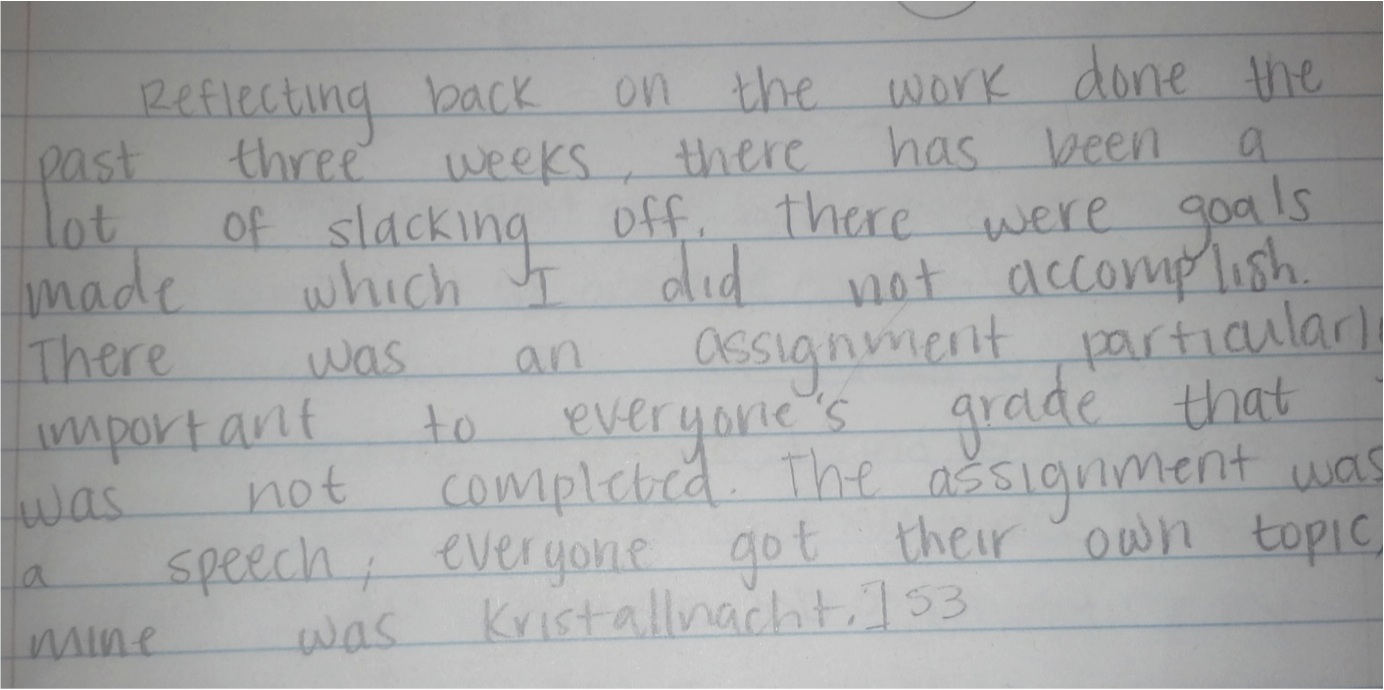 Reflecting back on the work done the
past three weeks, there has been a
lot of slacking off. There were goals
made which I did not accomplish.
There was an assignment particularl
important to everyone's grade that
was not completed. The assignment was
a speech; everyone got their own topic,
mine was Kristallnacht.] 53